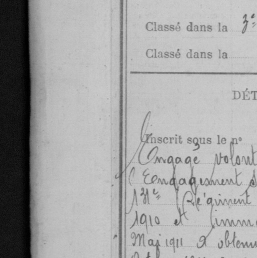 Classé dans la 3e
Classé dans la
DÉT
Inscrit sous le n°
Engagé volont
l'Engagement
Régiment
1910 et imm
Mai 1911 a obtenu